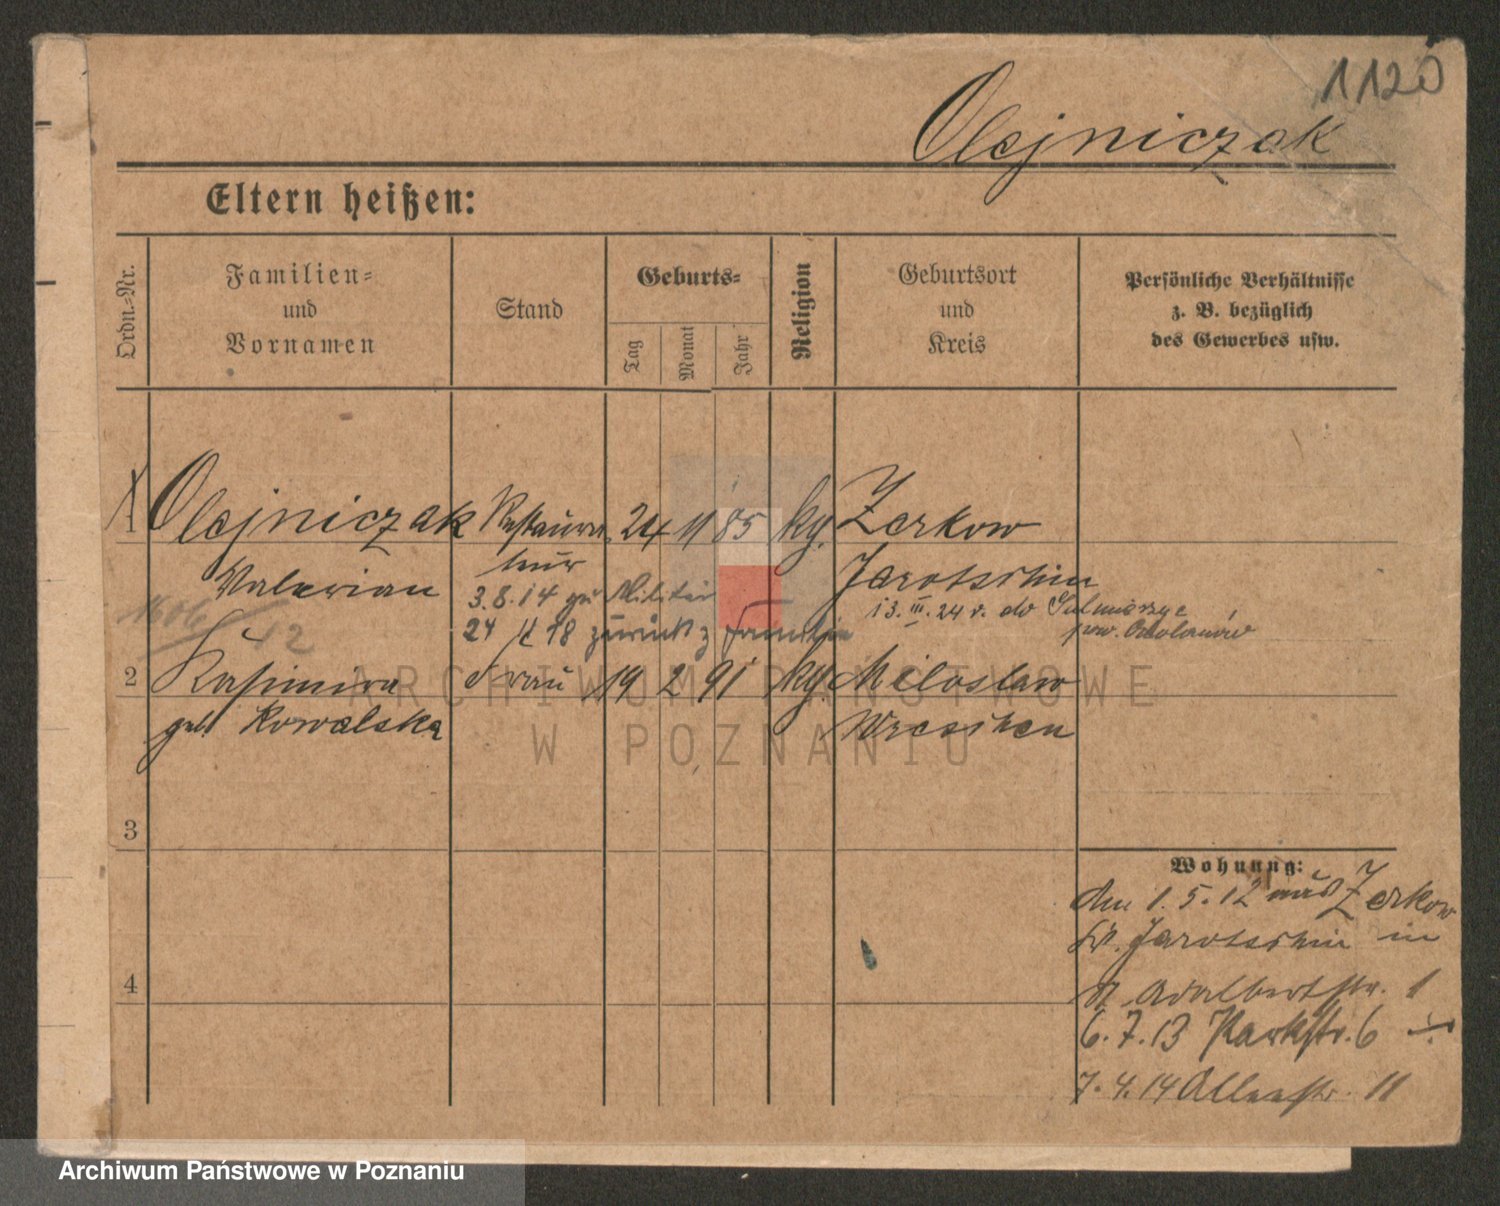 1120
Olejniczak
Eltern heißen:
Ordn.-Nr.
Familien-
und
Vornamen
Stand
Geburts-
Tag
Monat
Jahr
Religion
Geburtsort
und
Kreis
Persönliche Verhältnisse
z. B. bezüglich
des Gewerbes usw.
1 Olejniczak Restaura 24 11 85 kg. Zerkow
Valerian teur Jarotschin
3.8.14 zu Militär 13. III. 24 r. do Sulmierzyc
24 11 18 zurück z Familie pow. Odolanów
12
2 Kasimira Frau 19 2 91 kg. Miloslaw
geb. Kowalska Wreschen
3
4
Wohnung:
den 1.5.12 aus Zerkow
Kr. Jarotschin in
Adalbertstr. 1
6.7.13 Parkstr. 6
7.4.14 Alleestr. 11
ARCHIWUM PAŃSTWOWE
W POZNANIU
Archiwum Państwowe w Poznaniu